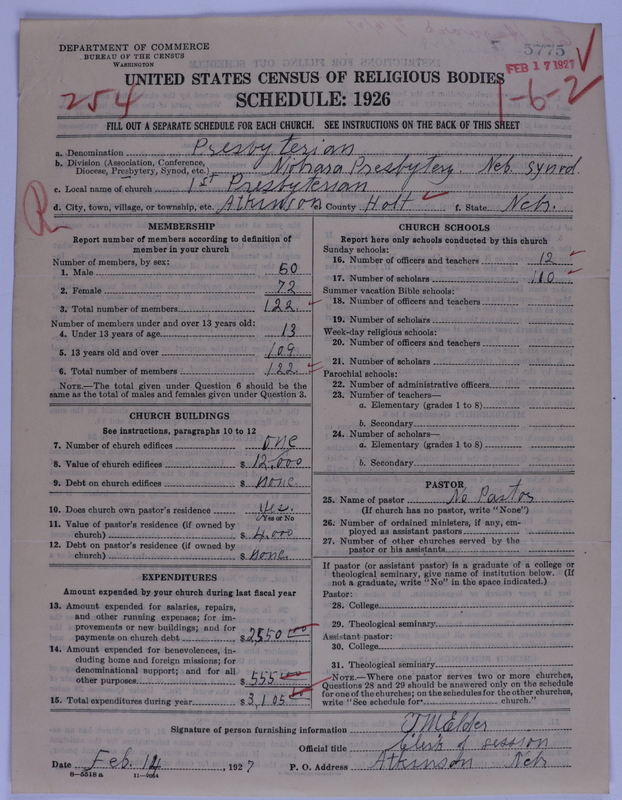 DEPARTMENT OF COMMERCE
BUREAU OF THE CENSUS
WASHINGTON
5775
FEB 17 1927
UNITED STATES CENSUS OF RELIGIOUS BODIES
254
SCHEDULE: 1926
1-6-2
FILL OUT A SEPARATE SCHEDULE FOR EACH CHURCH. SEE INSTRUCTIONS ON THE BACK OF THIS SHEET
a. Denomination Presbyterian
b. Division (Association, Conference, Diocese, Presbytery, Synod, etc.) Niobrara Presbytery. Neb. Synod
c. Local name of church 1st Presbyterian
d. City, town, village, or township, etc. Atkinson e. County Holt f. State Nebr.
R
MEMBERSHIP
Report number of members according to definition of
member in your church
Number of members, by sex:
1. Male 50
2. Female 72
3. Total number of members 122
Number of members under and over 13 years old:
4. Under 13 years of age 13
5. 13 years old and over 109
6. Total number of members 122
NOTE.—The total given under Question 6 should be
same as the total of males and females given under Question 3.
CHURCH BUILDINGS
See instructions, paragraphs 10 to 12
7. Number of church edifices one
8. Value of church edifices $ 12,000
9. Debt on church edifices $ none
10. Does church own pastor's residence yes.
Yes or No
11. Value of pastor's residence (if owned by
church) $ 4,000
12. Debt on pastor's residence (if owned by
church) $ none.
EXPENDITURES
Amount expended by your church during last fiscal year
13. Amount expended for salaries, repairs,
and other running expenses; for im-
provements or new buildings; and for
payments on church debt $ 2550 00
14. Amount expended for benevolences, in-
cluding home and foreign missions; for
denominational support; and for all
other purposes $ 555 00
15. Total expenditures during year $ 3,105 00
CHURCH SCHOOLS
Report here only schools conducted by this church
Sunday schools:
16. Number of officers and teachers 12
17. Number of scholars 110
Summer vacation Bible schools:
18. Number of officers and teachers
19. Number of scholars
Week-day religious schools:
20. Number of officers and teachers
21. Number of scholars
Parochial schools:
22. Number of administrative officers
23. Number of teachers—
a. Elementary (grades 1 to 8)
b. Secondary
24. Number of scholars—
a. Elementary (grades 1 to 8)
b. Secondary
PASTOR
25. Name of pastor No Pastor
(If church has no pastor, write "None")
26. Number of ordained ministers, if any, em-
ployed as assistant pastors
27. Number of other churches served by the
pastor or his assistants
If pastor (or assistant pastor) is a graduate of a college or
theological seminary, give name of institution below. (If
not a graduate, write "No" in the space indicated.)
Pastor:
28. College
29. Theological seminary
Assistant pastor:
30. College
31. Theological seminary
NOTE.—Where one pastor serves two or more churches,
Questions 28 and 29 should be answered only on the schedule
for one of the churches; on the schedules for the other churches,
write "See schedule for church."
Signature of person furnishing information J M Elder
Official title Clerk of session
Date Feb. 14, 1927 P. O. Address Atkinson Nebr
8—5518 a 11—9064